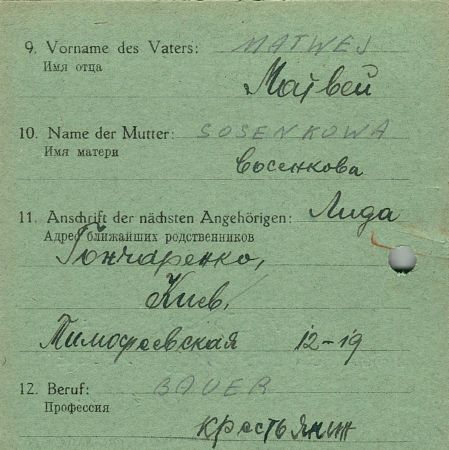 9. Vorname des Vaters: MATWEJ
Имя отца
Матвей
10. Name der Mutter: SOSENKOWA
Имя матери
Сосенкова
11. Anschrift der nächsten Angehörigen: Лида
Адрес ближайших родственников
Гончаренко,
Киев,
Тимофеевская 12-19
12. Beruf: BAUER
Профессия
крестьянин